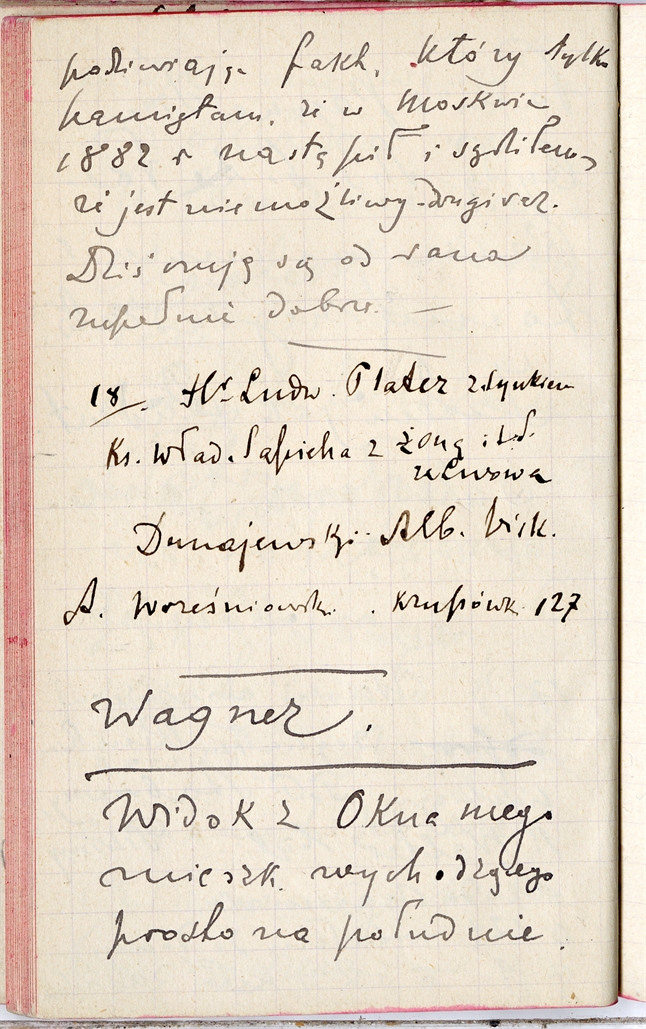 podziwiając fakt, który tylko
pamiętam, że w Moskwie
1882 r nastąpił i sądziłem,
że jest niemożliwy drugi raz.
Dziś czuję się od rana
zupełnie dobrze. —
18. Hr. Ludw. Plater z synkiem
Ks. Wład. Sapieha z żoną i
ze Lwowa
Dunajewski Alb. bisk.
A. Wrześniowski. Krupówk 127
Wagner.
Widok z Okna mego
mieszk. wychodzącego
prosto na południe.